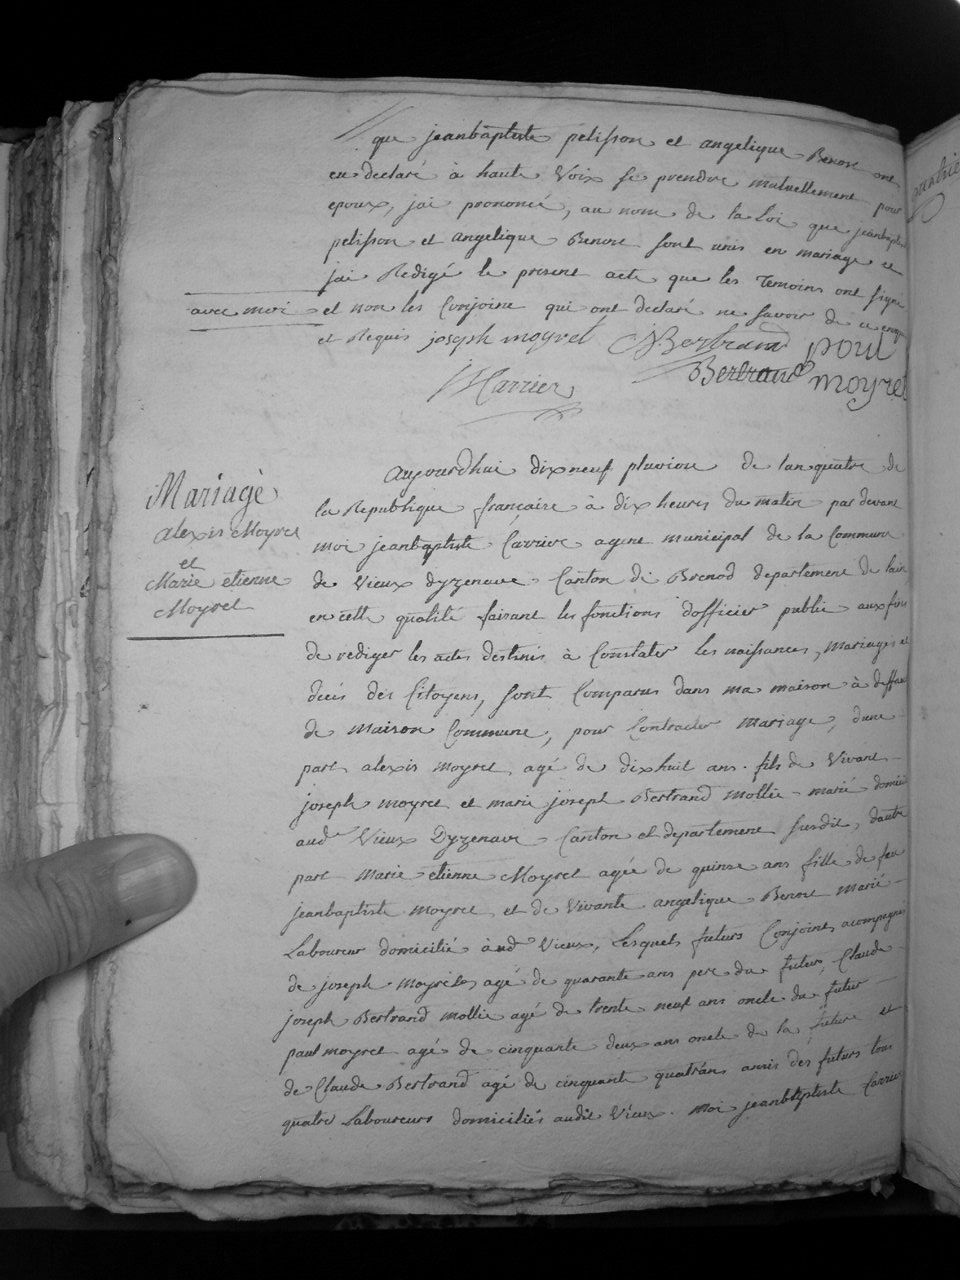 que jeanbaptiste pelisson et angelique Benoit ont
eu declaré à haute Voix se prendre mutuellement pour
epoux, jai prononcé, au nom de la Loi que jeanbaptiste
pelisson et angelique Benoit sont unis en mariage et
jai Redigé le present acte que les Temoins ont signé
avec moi et non les Conjoint qui ont declaré ne savoir de ce enquis
et Requis joseph moyret Bertrand paul
Bertrand moyret
Carrier
Mariage
alexis Moyret
et
Marie etienne
Moyret
aujourdhui dixneuf pluviose de lan quatre de
la Republique francaise à dix heures du matin par devant
moi jeanbaptiste Carrier agent municipal de la Commune
de Vieux dyzenave Canton de Brenod departement de lain
en cette qualité faisant les fonctions dofficier public aux fins
de rediger les actes destinés à Constater les naissances, mariages et
decés des Citoyens, sont Comparus dans ma maison à deffaut
de maison Commune, pour Contracter mariage, dune
part alexis moyret agé de dixhuit ans fils de Vivant
joseph moyret et marie joseph Bertrand mollie marié domicilié
aud Vieux Dyzenave Canton et departement susdit, dautre
part Marie etienne Moyret agée de quinze ans fille de feu
jeanbaptiste moyret et de Vivante angelique Benoit marié
Laboureur domicilié aud Vieux, Lesquels futurs Conjoints acompagné
de joseph Moyret agé de quarante ans pere du futur, Claude
joseph Bertrand mollie agé de trente neuf ans oncle du futur
paul moyret agé de cinquante deux ans oncle de la future et
de Claude Bertrand agé de cinquante quatrans amis des futurs tous
quatre Laboureurs domiciliés audit Vieux. moi jeanbaptiste Carrier